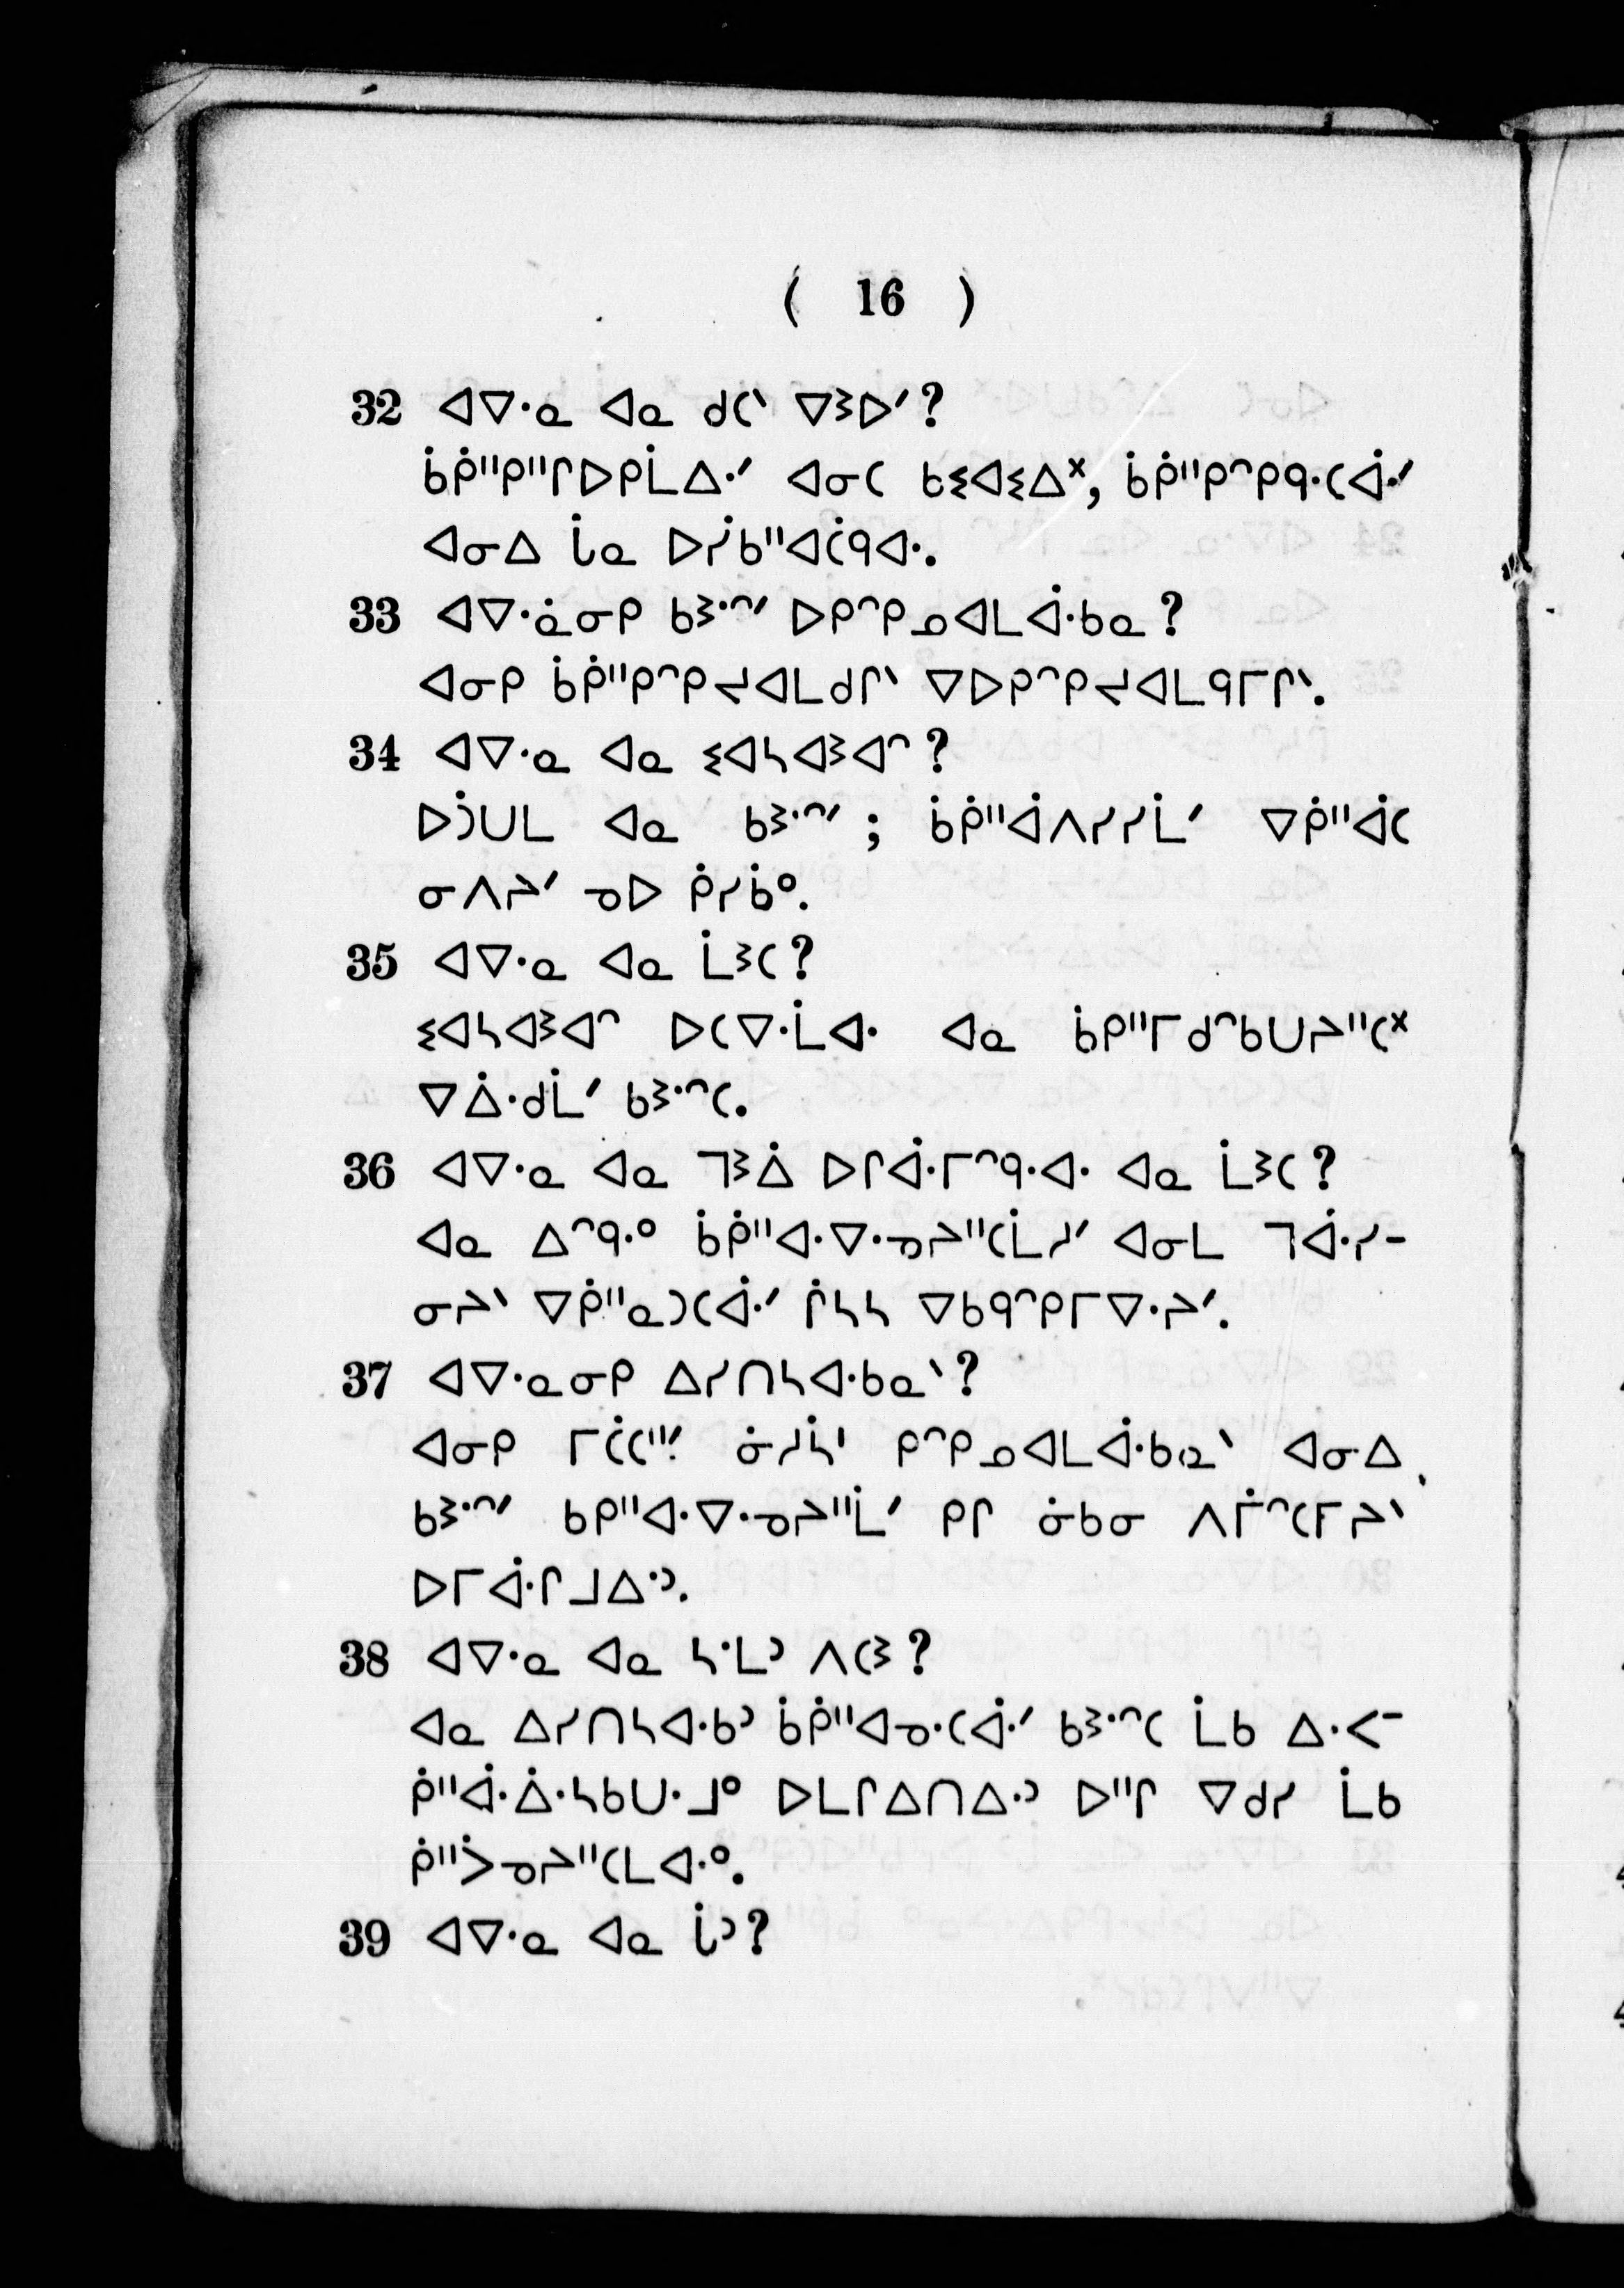 ( 16 )
32 ᐊᐁᐧᓇ ᐊᓇ ᑯᑕᐠ ᐁᕒᐅᐟ?
ᑳᑮᐦᑭᐦᒋᐅᑭᒫᐃᐧᐟ ᐊᓂᑕ ᑲᓬᐊᓬᐃᕽ, ᑳᑮᐦᑭᐢᑭᑫᐧᑕᐋᐧᐟ
ᐊᓂᐃ ᒑᓇ ᐅᓰᑲᐦᐊᑖᑫᐊᐧ.
33 ᐊᐁᐧᓈᓂᑭ ᑲᕒᐧᐢᐟ ᐅᑭᐢᑭᓄᐊᒪᐋᐧᑲᓇ?
ᐊᓂᑭ ᑳᑮᐦᑭᐢᑭᔪᐊᒪᑯᒋᐠ ᐁᐅᑭᐢᑭᔪᐊᒪᑫᒥᒋᐠ.
34 ᐊᐁᐧᓇ ᐊᓇ ᓬᐊᓴᐊᕒᐊᐢ?
ᐅᑑᑌᒪ ᐊᓇ ᑲᕒᐧᐢᐟ; ᑳᑮᐦᐋᐱᓯᓯᒫᐟ ᐁᑮᐦᐋᑕ
ᓂᐱᔨᐟ ᓀᐅ ᑮᓯᑳᐤ.
35 ᐊᐁᐧᓇ ᐊᓇ ᒫᕒᑕ?
ᓬᐊᓴᐊᕒᐊᐢ ᐅᑕᐁᐧᒫᐊᐧ ᐊᓇ ᑳᑭᐦᒥᑯᐢᑲᑌᔨᐦᑕᕽ
ᐁᐄᐧᑯᒫᐟ ᑲᕒᐧᐢᑕ.
36 ᐊᐁᐧᓇ ᐊᓇ ᒣᕒᐄ ᐅᒋᐋᐧᒥᐢᑫᐧᐊᐧ ᐊᓇ ᒫᕒᑕ?
ᐊᓇ ᐃᐢᑫᐧᐤ ᑳᑮᐦᐊᐧᐁᐧᓀᔨᐦᑕᒫᓱᐟ ᐊᓂᒪ ᒣᐋᐧᓯ-
ᓂᔨᐠ ᐁᑮᐦᓇᑐᑕᐋᐧᐟ ᒌᓴᓴ ᐁᑲᑫᐢᑭᒥᐁᐧᔨᐟ.
37 ᐊᐁᐧᓇᓂᑭ ᐃᓯᑎᓴᐊᐧᑲᓇᐠ?
ᐊᓂᑭ ᒥᑖᑕᐦᐟ ᓃᓱᓵᑊ ᑭᐢᑭᓄᐊᒪᐋᐧᑲᓇᐠ ᐊᓂᐃ
ᑲᕒᐧᐢᐟ ᑲᑭᐦᐊᐧᐁᐧᓀᔨᐦᒫᐟ ᑭᒋ ᓃᑲᓂ ᐱᒦᐢᑕᒥᔨᐠ
ᐅᒥᐋᐧᒋᒧᐃᐧᐣ.
38 ᐊᐁᐧᓇ ᐊᓇ ᓴᐧᒪᐣ ᐱᑕᕒ?
ᐊᓇ ᐃᓯᑎᓴᐊᐧᑲᐣ ᑳᑮᐦᐊᓀᐧᑕᐋᐧᐟ ᑲᕒᐧᐢᑕ ᒫᑲ ᐃᐧᐸ-
ᑮᐦᐋᐧᐄᐧᓴᑲᑌᐧᒧᐤ ᐅᒪᒋᐃᑎᐃᐧᐣ ᐅᐦᒋ ᐁᑯᓯ ᒫᑲ
ᑮᐦᐴᓀᔨᐦᑕᒪᐊᐧᐤ.
39 ᐊᐁᐧᓇ ᐊᓇ ᒑᐣ?